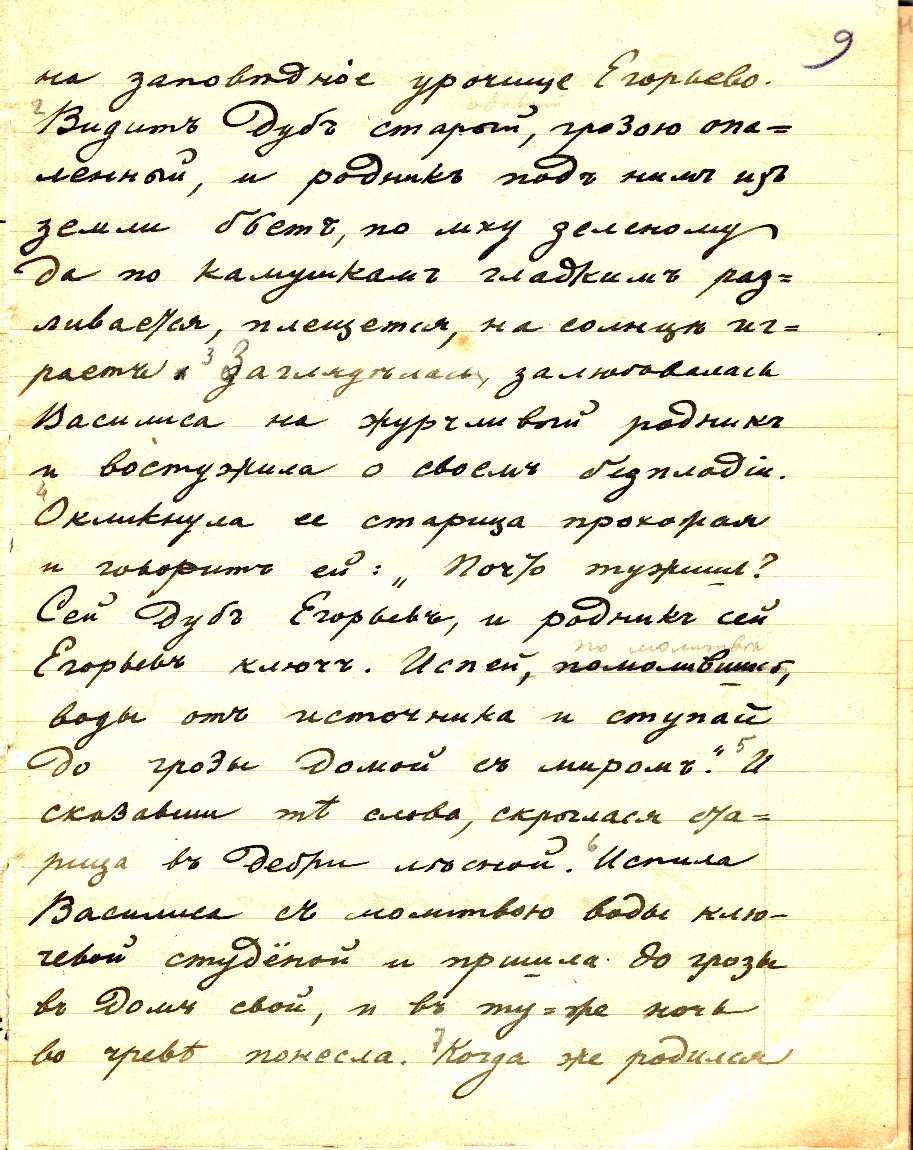 9
на заповѣдное урочище Егорьево.
2 Видитъ Дубъ старый, грозою опа=
ленный, и родникъ подъ нимъ изъ
земли бьетъ, по мху зеленому
да по камушкамъ гладкимъ раз=
ливается, плещется, на солнцѣ иг=
раетъ. 3 Заглядѣлась, залюбовалась
Василиса на журчливый родникъ
и востужила о своемъ безплодіи.
4 Окликнула ее старица прохожая
и говоритъ ей: „Почто тужишь?
Сей Дубъ Егорьевъ, и родникъ сей
по молитвѣ
Егорьевъ ключъ. Испей, помолившись,
воды отъ источника и ступай
до грозы домой съ миромъ." 5 И
сказавши тѣ слова, скрылася ста=
рица въ дебри лѣсной. 6 Испила
Василиса съ молитвою воды клю-
чевой студёной и пришла до грозы
въ домъ свой, и въ ту=же ночь
во чревѣ понесла. 7 Когда же родился